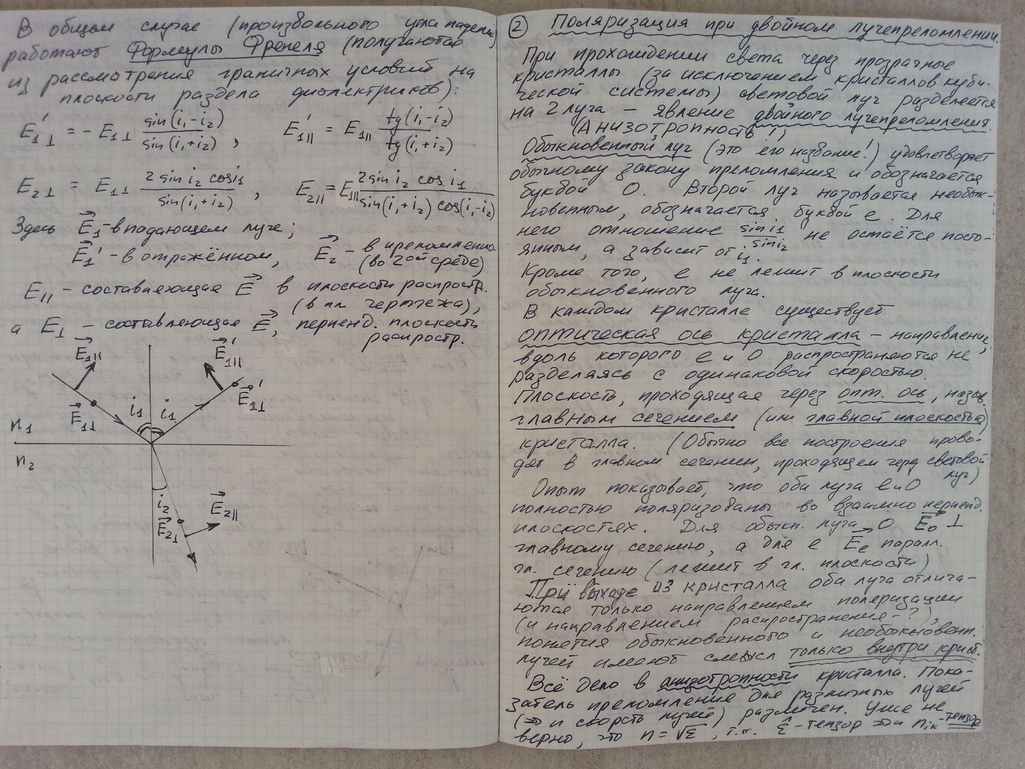 В общем случае (произвольного угла падения)
работают Формулы Френеля (получаются
из рассмотрения граничных условий на
плоскости раздела диэлектриков):
E₁⊥' = - E₁⊥ sin(i₁-i₂)/sin(i₁+i₂), E₁||' = E₁|| tg(i₁-i₂)/tg(i₁+i₂)
E₂⊥ = E₁⊥ 2 sin i₂ cos i₁/sin(i₁+i₂), E₂|| = E₁|| 2 sin i₂ cos i₁/sin(i₁+i₂) cos(i₁-i₂)
Здесь E⃗₁ - в подающем луче;
E⃗₁' - в отражённом, E⃗₂ - в преломленно.
(во 2ой среде)
E|| - составляющая E⃗ в плоскости распростр.
(в пл. чертежа),
а E⊥ - составляющая E⃗, перпенд. плоскость
распростр.
E⃗₁|| E⃗₁||'
E⃗₁⊥ i₁ i₁ E⃗₁⊥'
n₁
n₂
i₂
E⃗₂⊥ E⃗₂||
2 Поляризация при двойном лучепреломлении.
При прохождении света через прозрачные
кристаллы (за исключением кристаллов куби-
ческой системы) световой луч разделяется
на 2 луча - явление двойного лучепреломления.
(Анизотропность!)
Обыкновенный луч (это его название!) удовлетворяет
обычному закону преломления и обозначается
буквой O. Второй луч называется необык-
новенным, обозначается буквой e. Для
него отношение sin i₁/sin i₂ не остаётся посто-
янным, а зависит от i₁.
Кроме того, e не лежит в плоскости
обыкновенного луча.
В каждом кристалле существует
оптическая ось кристалла - направление,
вдоль которого e и O распространяются не
разделяясь с одинаковой скоростью.
Плоскость, проходящая через опт. ось, назыв.
главным сечением (или главной плоскостью)
кристалла. (Обычно все построения прово-
дят в главном сечении, проходящем через световой
луч)
Опыт показывает, что оба луча e и O
полностью поляризованы во взаимно перпенд.
плоскостях. Для обыкн. луча O E⃗o ⊥
главному сечению, а для e E⃗e паралл.
гл. сечению (лежит в гл. плоскости)
При выходе из кристалла оба луча отлича-
ются только направлением поляризации
(и направлением распространения - ?),
понятия обыкновенного и необыкновенн.
лучей имеют смысл только внутри крист.
Всё дело в анизотропности кристалла. Пока-
затель преломление для различных лучей
(⇒ и скорость лучей) различен. Уже не
верно, что n = √ε, т.к. ε̂ - тензор ⇒ nᵢₖ - тензор